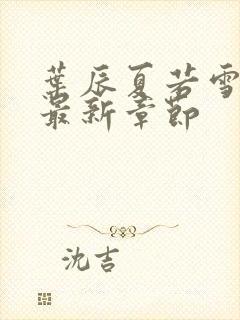 叶辰夏若雪
最新章节
沈吉